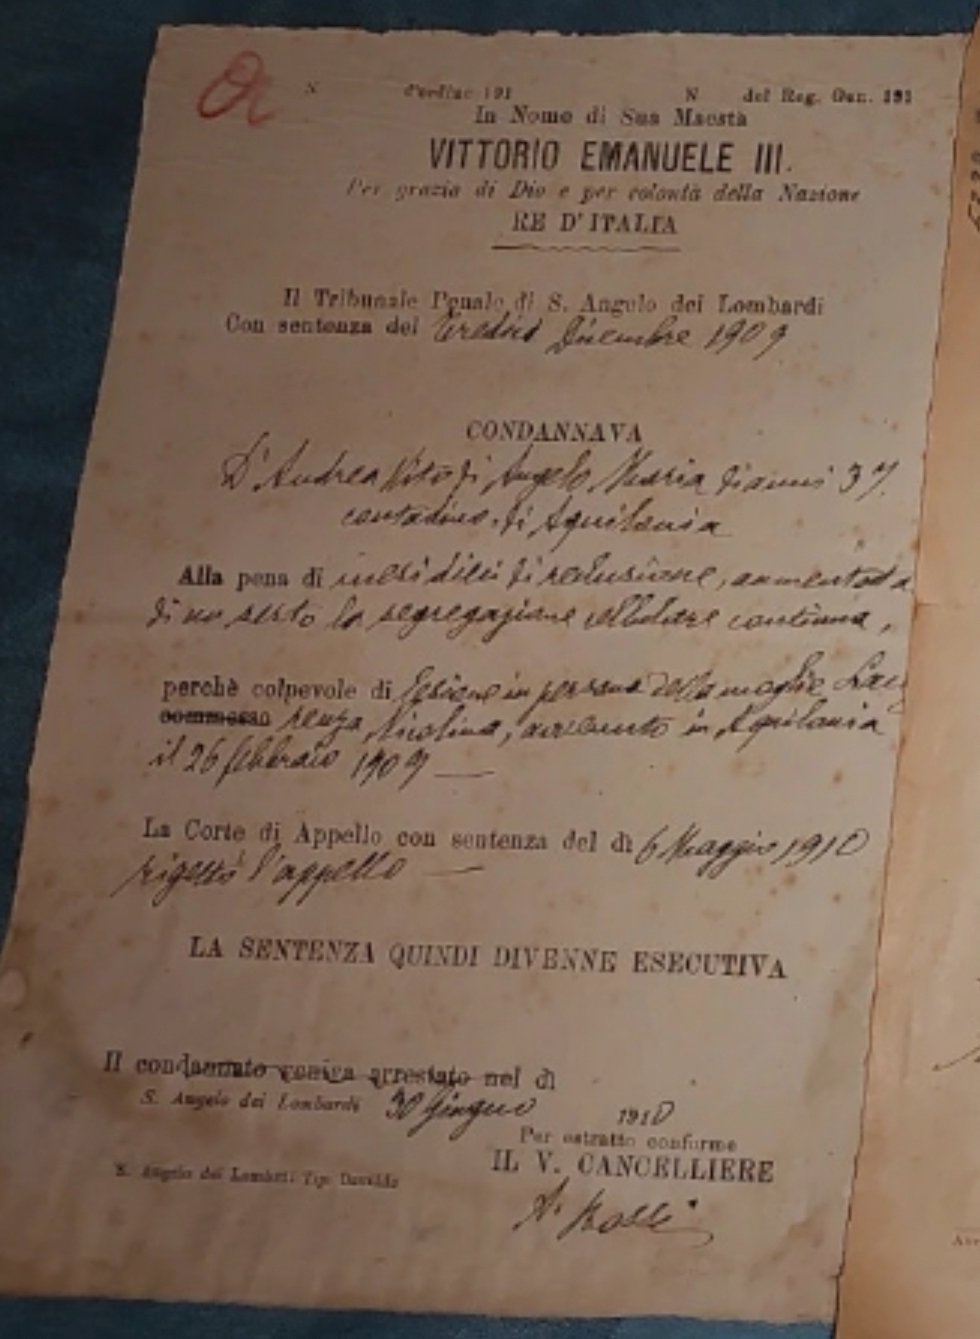 N d'ordine 191 N del Reg. Gen. 191
In Nome di Sua Maestà
VITTORIO EMANUELE III.
Per grazia di Dio e per volontà della Nazione
RE D'ITALIA
Il Tribunale Penale di S. Angelo dei Lombardi
Con sentenza del tredici Dicembre 1909
CONDANNAVA
D'Andrea Vito di Angelo Maria di anni 37
contadino, di Aquilonia
Alla pena di mesi dieci di reclusione, aumentata
di un sesto la segregazione cellulare continua,
perchè colpevole di lesione in persona della moglie
commesso Nicolina, avvenuto in Aquilonia
il 26 febbraio 1909
La Corte di Appello con sentenza del dì 6 Maggio 1910
rigettò l'appello
LA SENTENZA QUINDI DIVENNE ESECUTIVA
Il condannato veniva arrestato nel dì
S. Angelo dei Lombardi 30 Giugno 1910
Per estratto conforme
IL V. CANCELLIERE
S. Angelo dei Lombardi Tip.